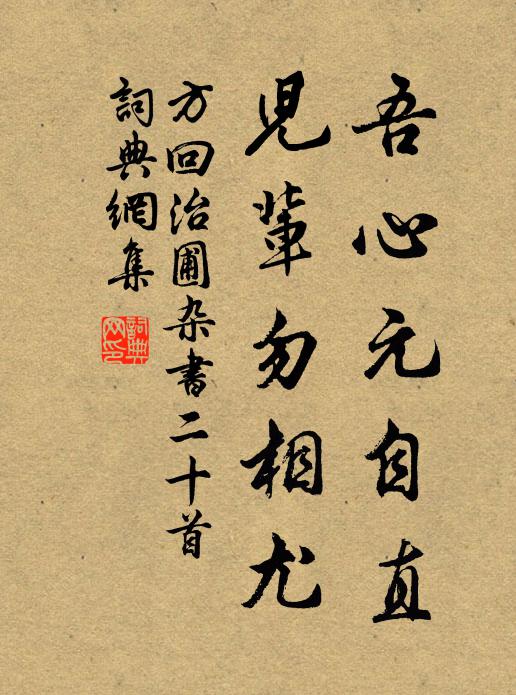 吾心元自直
児輩勿相尤
方回治圃杂書二十首
詞典網集
詞典網印